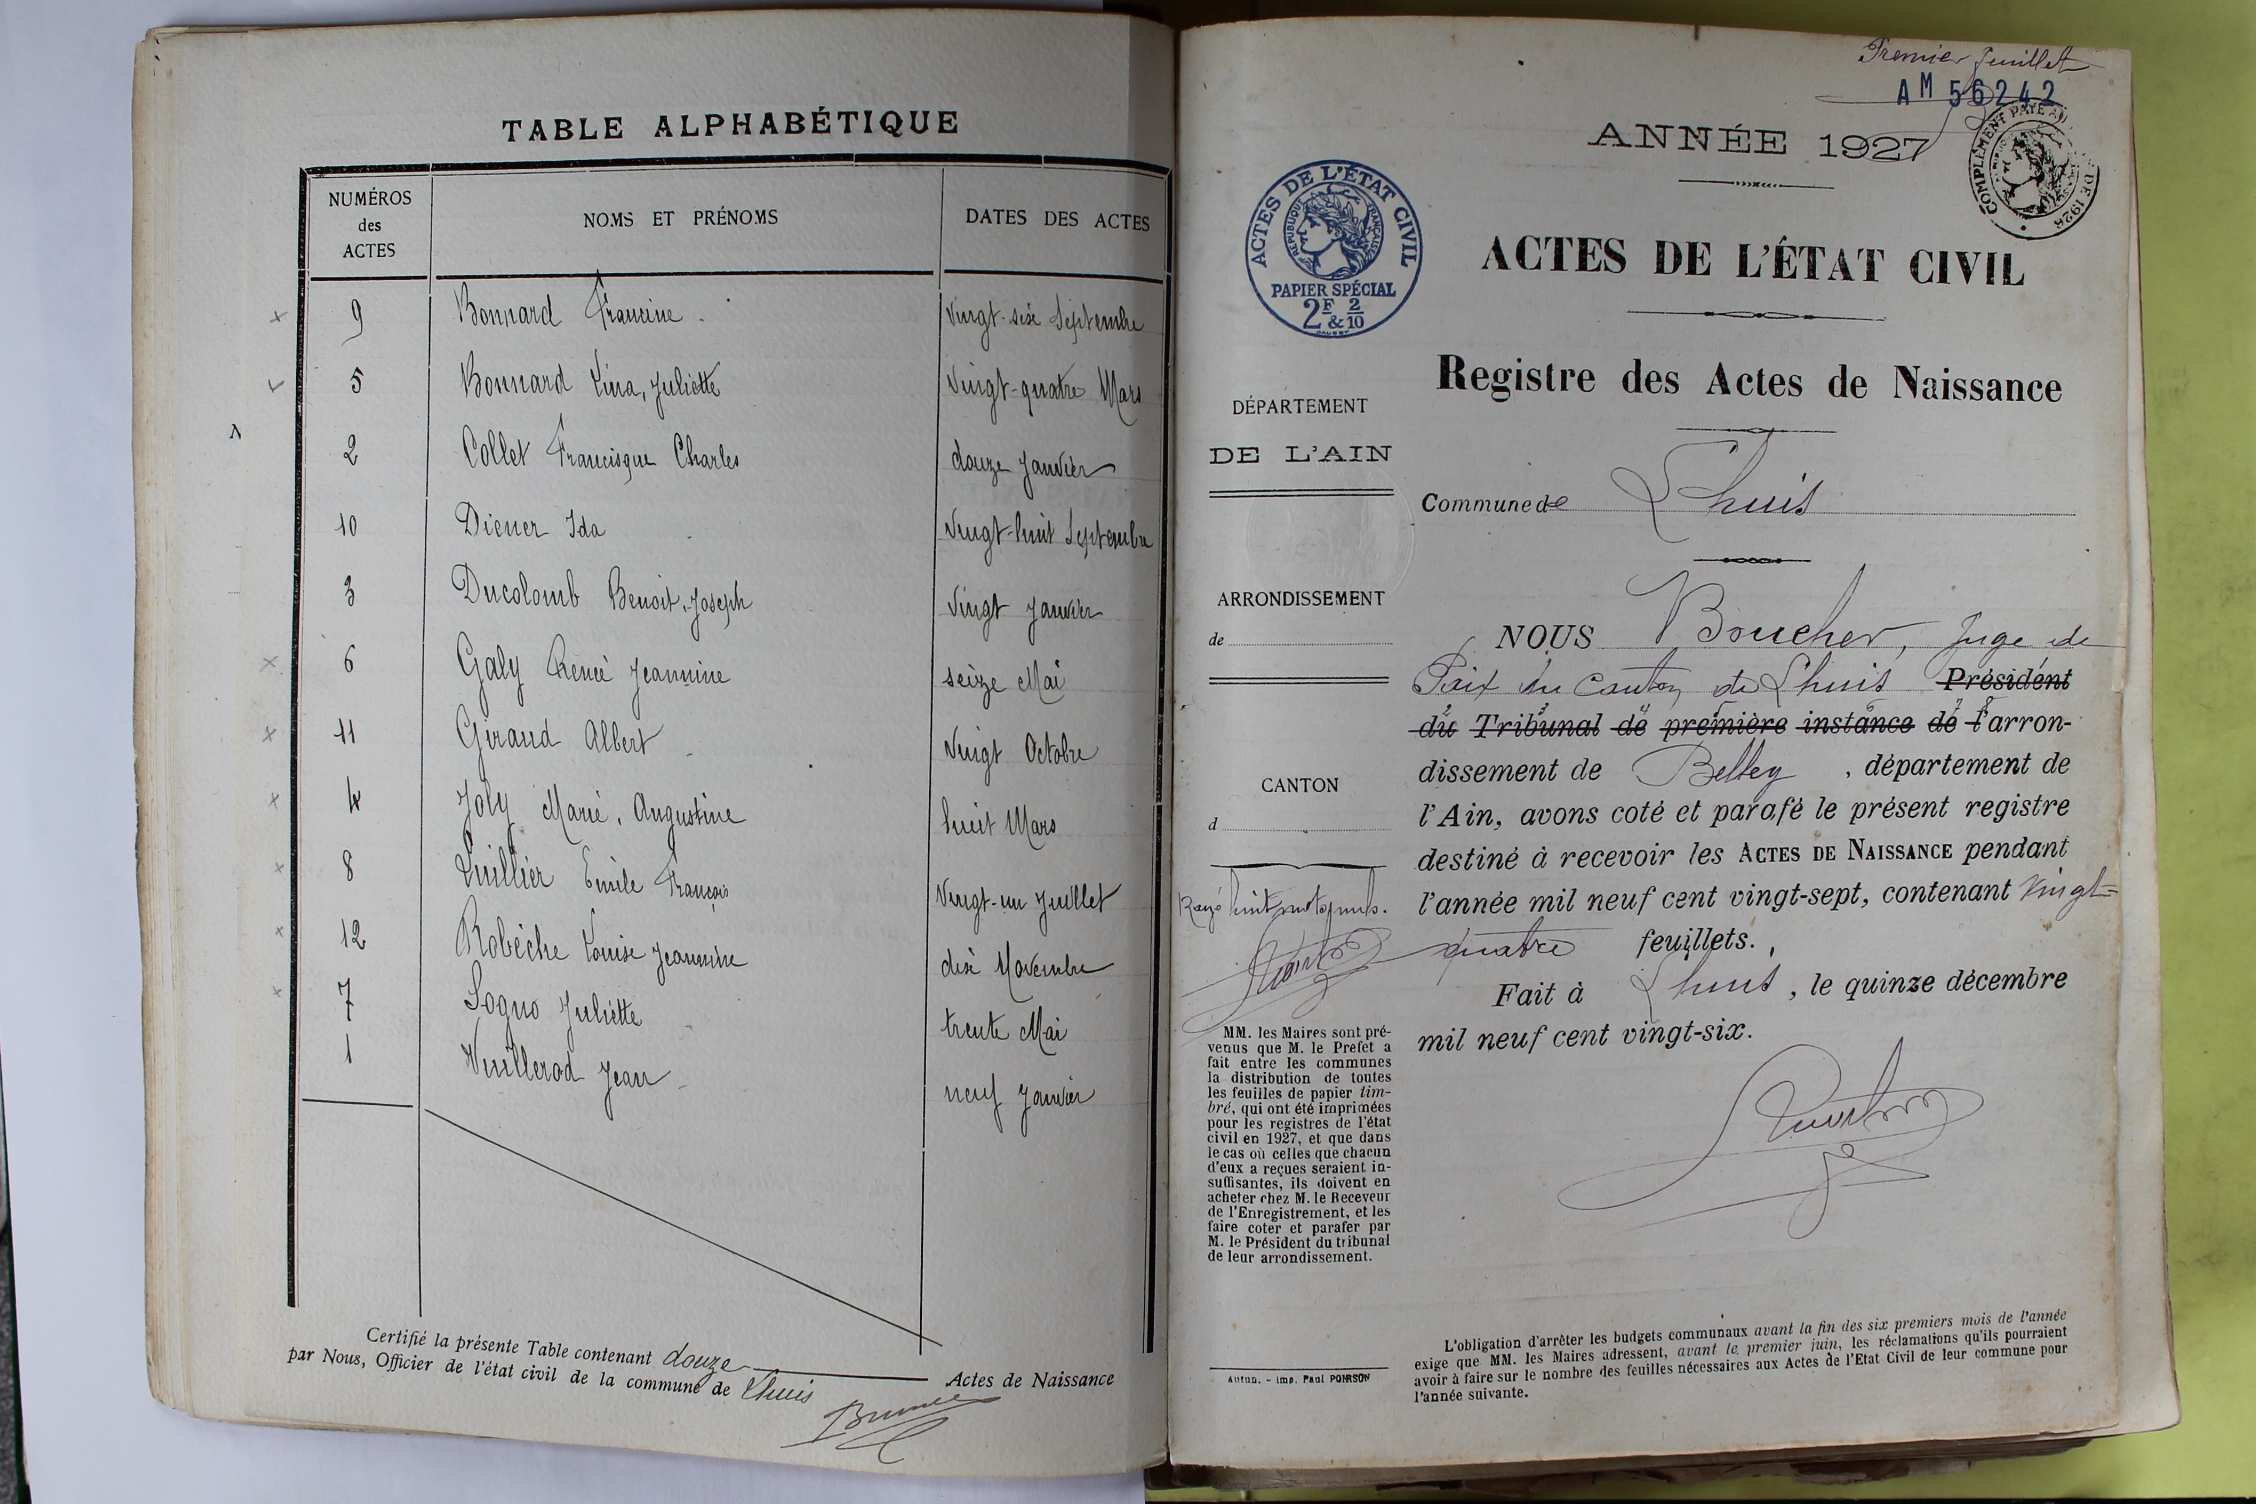 TABLE ALPHABÉTIQUE
NUMÉROS des ACTES NOMS ET PRÉNOMS DATES DES ACTES
9 Bonnard Francine Vingt-six Septembre
5 Bonnard Lina, Juliette Vingt-quatre Mars
2 Collet Francisque Charles douze Janvier
10 Diener Ida Vingt-huit Septembre
3 Ducolomb Benoit, Joseph Vingt Janvier
6 Galy Renée Jeannine seize Mai
11 Giraud Albert Vingt Octobre
4 Joly Marie, Augustine huit Mars
8 Quillier Emile François Vingt-un Juillet
12 Robèche Louise Jeannine dix Novembre
7 Sogno Juliette trente Mai
1 Vuillerod Jean neuf Janvier
Certifié la présente Table contenant douze Actes de Naissance
par Nous, Officier de l'état civil de la commune de Lhuis
Premier feuillet
AM 56242
ANNÉE 1927
COMPLÉMENT PAYÉ
DE 1926
ACTES DE L'ÉTAT CIVIL
RÉPUBLIQUE FRANÇAISE
PAPIER SPÉCIAL
2F & 2/10
ACTES DE L'ÉTAT CIVIL
Registre des Actes de Naissance
DÉPARTEMENT
DE L'AIN
Commune de Lhuis
ARRONDISSEMENT
de
CANTON
d
NOUS Boucher, Juge de
Paix du Canton de Lhuis Président
du Tribunal de première instance de l'arron-
dissement de Belley, département de
l'Ain, avons coté et parafé le présent registre
destiné à recevoir les ACTES DE NAISSANCE pendant
l'année mil neuf cent vingt-sept, contenant vingt=
quatre feuillets.
Fait à Lhuis, le quinze décembre
mil neuf cent vingt-six.
Rayé huit mots nuls.
MM. les Maires sont pré-
venus que M. le Prefet a
fait entre les communes
la distribution de toutes
les feuilles de papier tim-
bré, qui ont été imprimées
pour les registres de l'état
civil en 1927, et que dans
le cas où celles que chacun
d'eux a reçues seraient in-
suffisantes, ils doivent en
acheter chez M. le Receveur
de l'Enregistrement, et les
faire coter et parafer par
M. le Président du tribunal
de leur arrondissement.
Autun. - Imp. Paul POIRSON
L'obligation d'arrêter les budgets communaux avant la fin des six premiers mois de l'année
exige que MM. les Maires adressent, avant le premier juin, les réclamations qu'ils pourraient
avoir à faire sur le nombre des feuilles nécessaires aux Actes de l'Etat Civil de leur commune pour
l'année suivante.